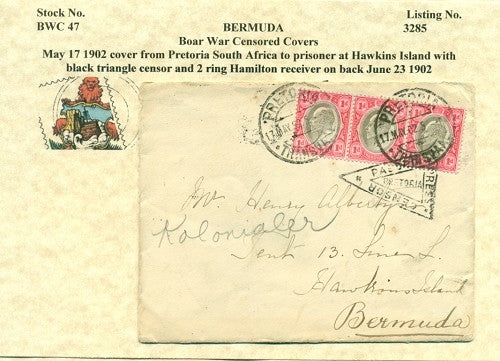 Stock No.
BWC 47
BERMUDA
Listing No.
3285
Boar War Censored Covers
May 17 1902 cover from Pretoria South Africa to prisoner at Hawkins Island with
black triangle censor and 2 ring Hamilton receiver on back June 23 1902
PRETORIA
17 MAY 02
TRANSVAAL
1d 1d
PRETORIA
17 MAY 02
TRANSVAAL
PASSED
PRESS
PRETORIA
CENSOR
Mr. Henry Albertyns
Kolonialer
Tent 13. Lines L.
Hawkins Island
Bermuda